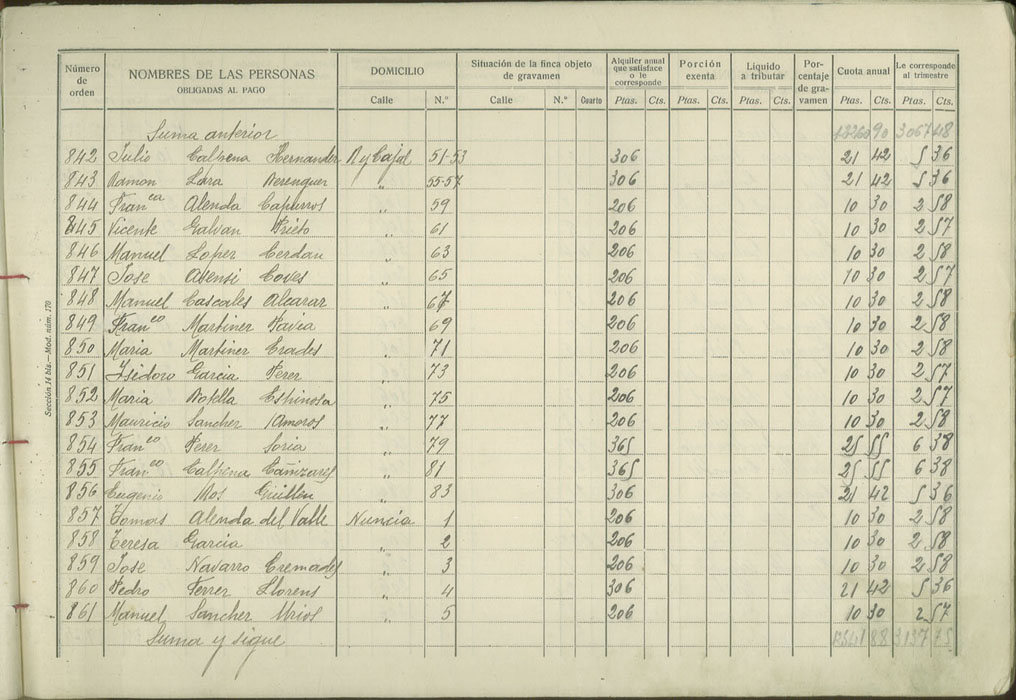 Número de orden | NOMBRES DE LAS PERSONAS OBLIGADAS AL PAGO | DOMICILIO Calle | N.º | Situación de la finca objeto de gravamen Calle | N.º | Cuarto | Alquiler anual que satisface o le corresponde Ptas. | Cts. | Porción exenta Ptas. | Cts. | Líquido a tributar Ptas. | Cts. | Porcentaje de gravamen | Cuota anual Ptas. | Cts. | Le corresponde al trimestre Ptas. | Cts.
Suma anterior 90 3067 48
842 Julio Calpena Hernander R y Cajal 51-53 306 21 42 5 36
843 Ramon Lara Berenguer " 55-57 306 21 42 5 36
844 Franca Alenda Capurros " 59 206 10 30 2 58
845 Vicente Galvan Prieto " 61 206 10 30 2 57
846 Manuel Loper Cerdan " 63 206 10 30 2 58
847 Jose Asensi Coves " 65 206 10 30 2 57
848 Manuel Cascales Alcarar " 67 206 10 30 2 58
849 Franco Martiner Pavia " 69 206 10 30 2 58
850 Maria Martiner Erades " 71 206 10 30 2 58
851 Isidoro Garcia Perer " 73 206 10 30 2 57
852 Maria Botella Espinosa " 75 206 10 30 2 57
853 Mauricio Sancher Amoros " 77 206 10 30 2 58
854 Franco Perer Soria " 79 365 25 55 6 38
855 Franco Calpena Cañizares " 81 365 25 55 6 38
856 Eugenio Mos Guillen " 83 306 21 42 5 36
857 Tomas Alenda del Valle Nuncia 1 206 10 30 2 58
858 Teresa Garcia " 2 206 10 30 2 58
859 Jose Navarro Cremades " 3 206 10 30 2 58
860 Pedro Ferrer Llorens " 4 306 21 42 5 36
861 Manuel Sancher Mrios " 5 206 10 30 2 57
Suma y sigue 88 3137
Sección 14 bis.—Mod. núm. 170